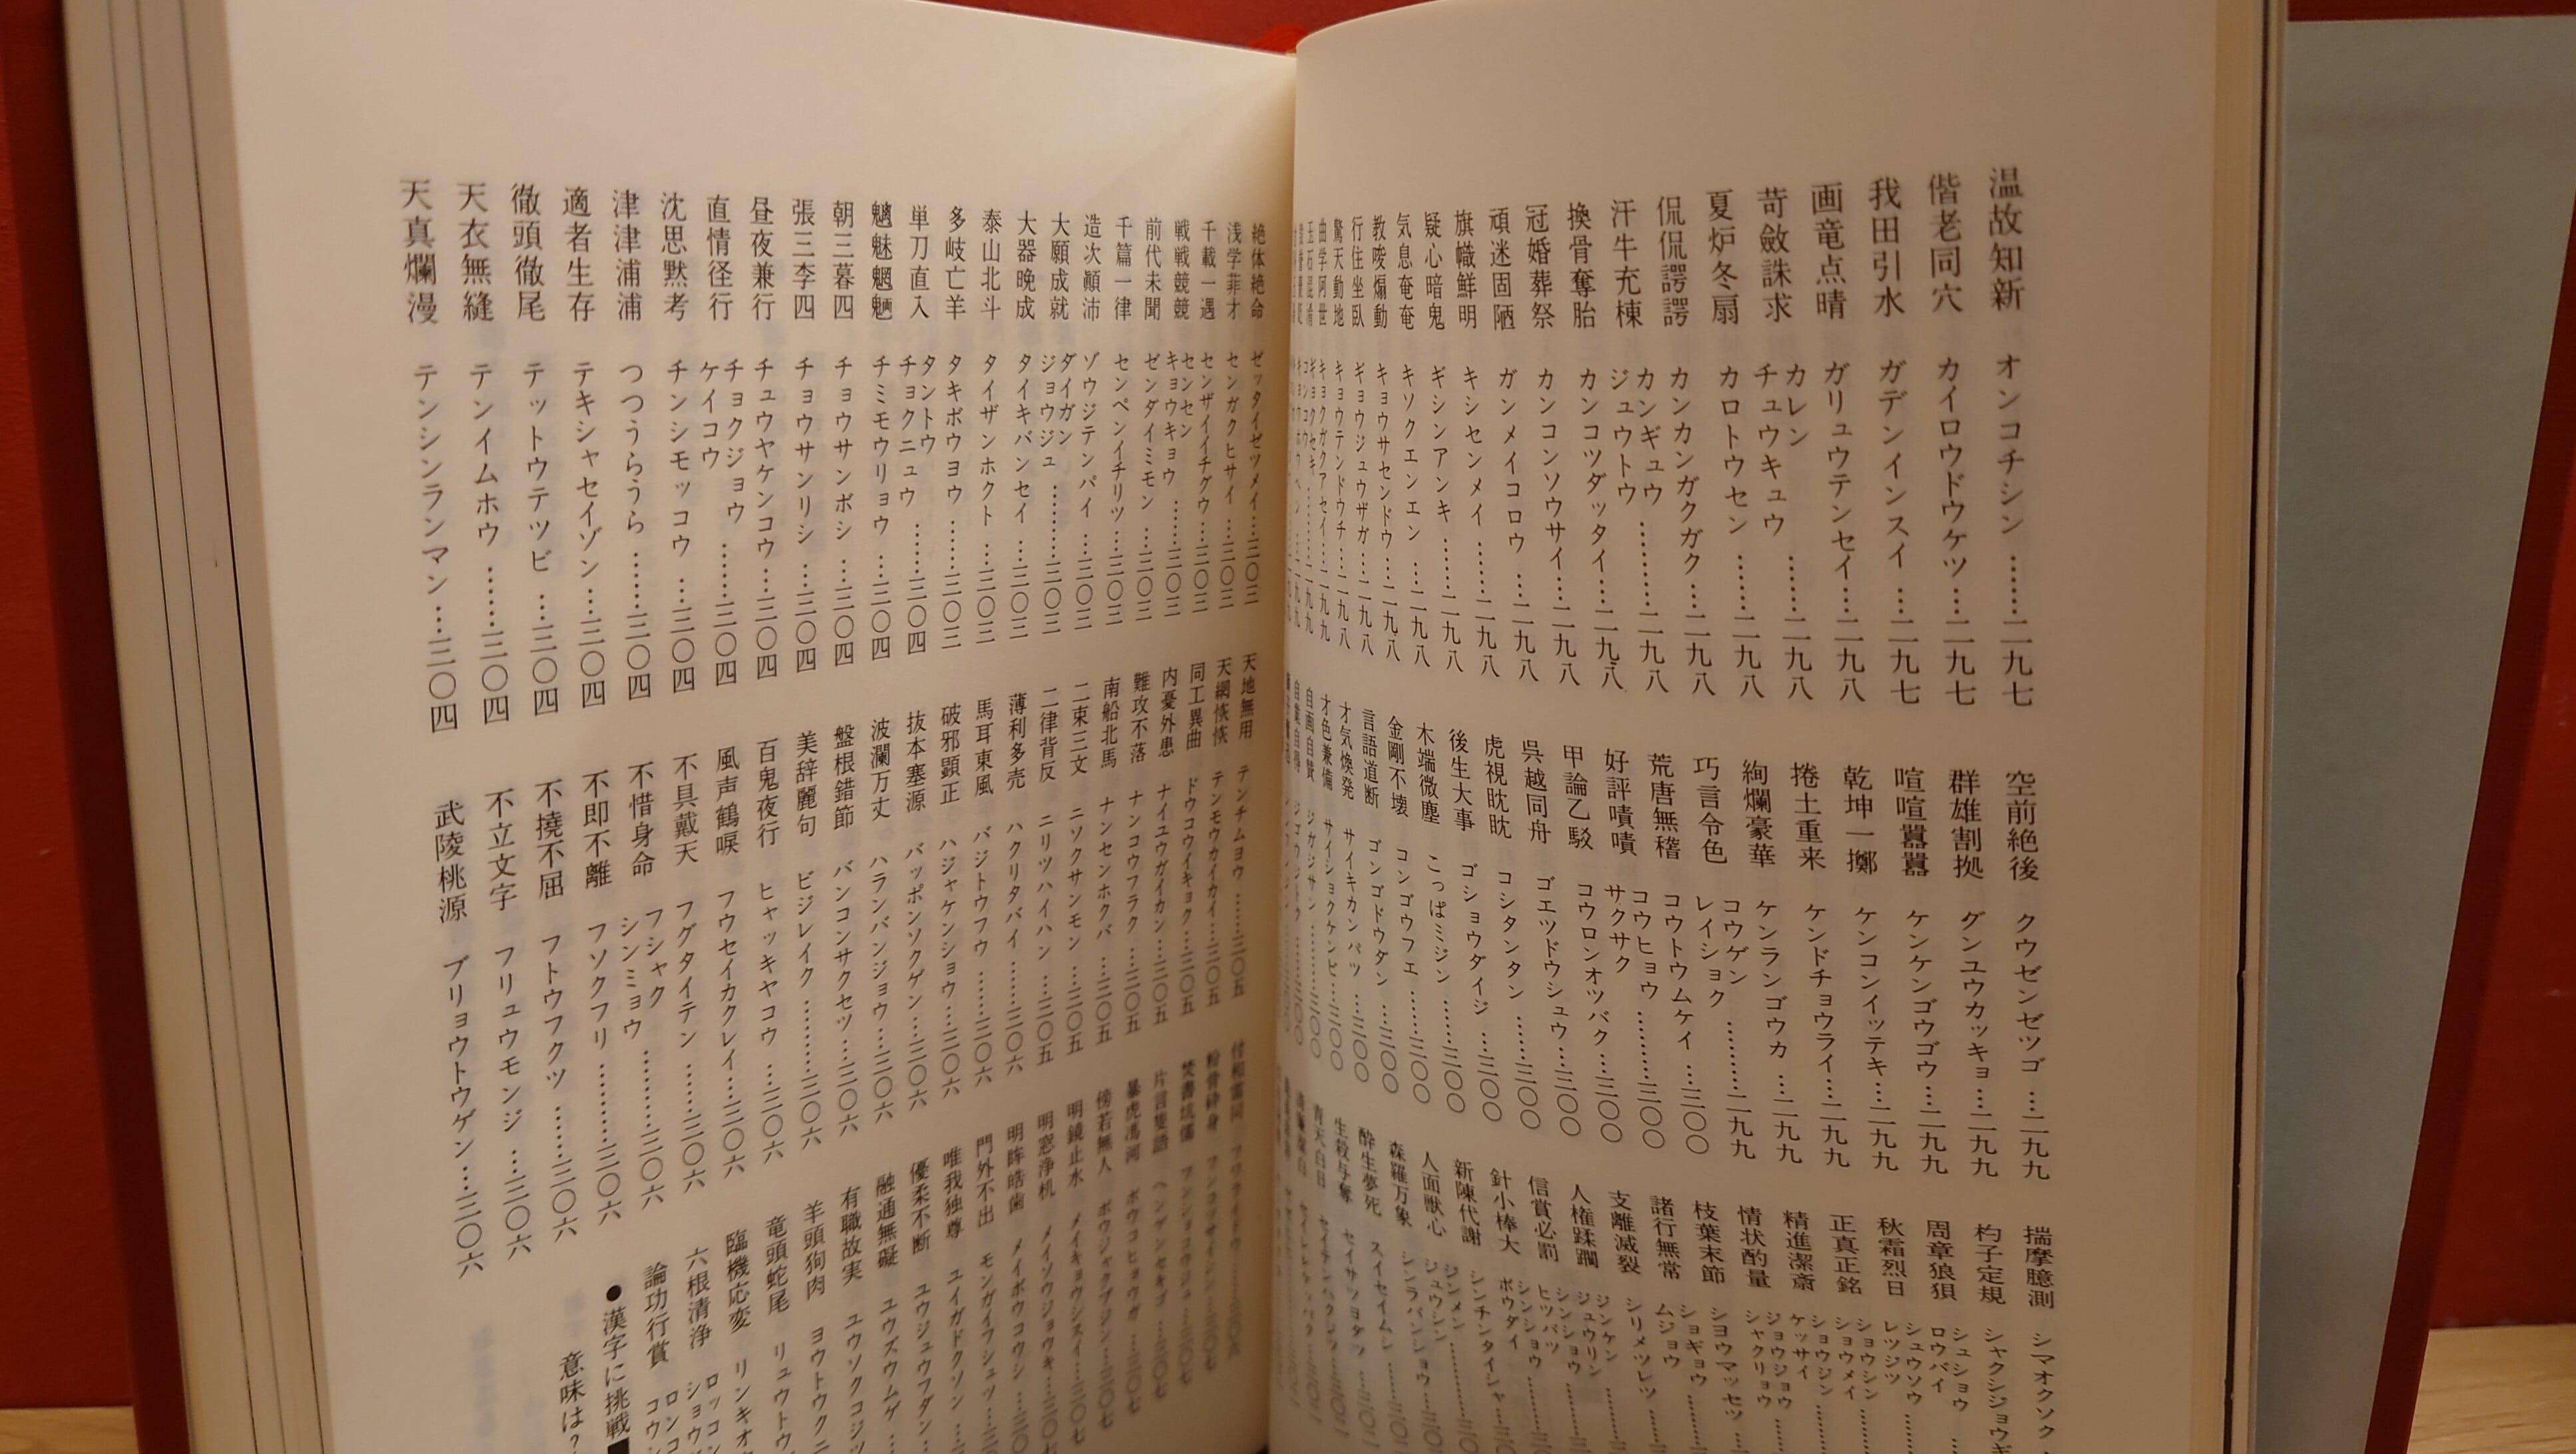 温故知新 オンコチシン ……二九七
偕老同穴 カイロウドウケツ …二九七
我田引水 ガデンインスイ …二九七
画竜点晴 ガリュウテンセイ…二九八
苛斂誅求 カレンチュウキュウ ……二九八
夏炉冬扇 カロトウセン ……二九八
侃侃諤諤 カンカンガクガク …二九八
汗牛充棟 カンギュウジュウトウ ………二九八
換骨奪胎 カンコツダッタイ…二九八
冠婚葬祭 カンコンソウサイ…二九八
頑迷固陋 ガンメイコロウ …二九八
旗幟鮮明 キシセンメイ ……二九八
疑心暗鬼 ギシンアンキ ……二九八
気息奄奄 キソクエンエン …二九八
教唆煽動 キョウサセンドウ…二九八
行住坐臥 ギョウジュウザガ…二九八
驚天動地 キョウテンドウチ…二九八
曲学阿世 キョクガクアセイ…二九九
空前絶後 クウゼンゼツゴ …二九九
群雄割拠 グンユウカッキョ…二九九
喧喧囂囂 ケンケンゴウゴウ…二九九
乾坤一擲 ケンコンイッテキ…二九九
捲土重来 ケンドチョウライ…二九九
絢爛豪華 ケンランゴウカ …二九九
巧言令色 コウゲンレイショク ………二九九
荒唐無稽 コウトウムケイ …三〇〇
好評嘖嘖 コウヒョウサクサク ………三〇〇
甲論乙駁 コウロンオツバク…三〇〇
呉越同舟 ゴエツドウシュウ…三〇〇
虎視眈眈 コシタンタン ……三〇〇
後生大事 ゴショウダイジ …三〇〇
木端微塵 こっぱミジン ……三〇〇
金剛不壊 コンゴウフエ ……三〇〇
言語道断 ゴンゴドウダン …三〇〇
才気煥発 サイキカンパツ …三〇〇
才色兼備 サイショクケンビ…三〇〇
自画自賛 ジガジサン ………三〇〇
揣摩臆測 シマオクソク
杓子定規 シャクシジョウギ
周章狼狽 シュショウロウバイ
秋霜烈日 シュウソウレツジツ
正真正銘 ショウシンショウメイ
精進潔斎 ショウジンケッサイ
情状酌量 ジョウジョウシャクリョウ
枝葉末節 シヨウマッセツ
諸行無常 ショギョウムジョウ
支離滅裂 シリメツレツ
人権蹂躙 ジンケンジュウリン
信賞必罰 シンショウヒツバツ
針小棒大 シンショウボウダイ
新陳代謝 シンチンタイシャ
人面獣心 ジンメンジュウシン
森羅万象 シンラバンショウ
酔生夢死 スイセイムシ
生殺与奪 セイサツヨダツ
青天白日 セイテンハクジツ
絶体絶命 ゼッタイゼツメイ…三〇三
浅学菲才 センガクヒサイ …三〇三
千載一遇 センザイイチグウ…三〇三
戦戦競競 センセンキョウキョウ ……三〇三
前代未聞 ゼンダイミモン …三〇三
千篇一律 センペンイチリツ…三〇三
造次顚沛 ゾウジテンパイ …三〇三
大願成就 ダイガンジョウジュ ………三〇三
大器晩成 タイキバンセイ …三〇三
泰山北斗 タイザンホクト …三〇三
多岐亡羊 タキボウヨウ ……三〇三
単刀直入 タントウチョクニュウ ……三〇四
魑魅魍魎 チミモウリョウ …三〇四
朝三暮四 チョウサンボシ …三〇四
張三李四 チョウサンリシ …三〇四
昼夜兼行 チュウヤケンコウ…三〇四
直情径行 チョクジョウケイコウ ……三〇四
沈思黙考 チンシモッコウ …三〇四
津津浦浦 つつうらうら ……三〇四
適者生存 テキシャセイゾン…三〇四
徹頭徹尾 テットウテツビ …三〇四
天衣無縫 テンイムホウ ……三〇四
天真爛漫 テンシンランマン…三〇四
天地無用 テンチムヨウ ……三〇五
天網恢恢 テンモウカイカイ…三〇五
同工異曲 ドウコウイキョク…三〇五
内憂外患 ナイユウガイカン…三〇五
難攻不落 ナンコウフラク …三〇五
南船北馬 ナンセンホクバ …三〇五
二束三文 ニソクサンモン …三〇五
二律背反 ニリツハイハン …三〇五
薄利多売 ハクリタバイ ……三〇六
馬耳東風 バジトウフウ ……三〇六
破邪顕正 ハジャケンショウ…三〇六
抜本塞源 バッポンソクゲン…三〇六
波瀾万丈 ハランバンジョウ…三〇六
盤根錯節 バンコンサクセツ…三〇六
美辞麗句 ビジレイク ………三〇六
百鬼夜行 ヒャッキヤコウ …三〇六
風声鶴唳 フウセイカクレイ…三〇六
不具戴天 フグタイテン ……三〇六
不惜身命 フシャクシンミョウ ………三〇六
不即不離 フソクフリ ………三〇六
不撓不屈 フトウフクツ ……三〇六
不立文字 フリュウモンジ …三〇六
武陵桃源 ブリョウトウゲン…三〇六
付和雷同 フワライドウ ……三〇六
粉骨砕身 フンコツサイシン…三〇七
焚書坑儒 フンショコウジュ…三〇七
片言隻語 ヘンゲンセキゴ …三〇七
暴虎馮河 ボウコヒョウガ …三〇七
傍若無人 ボウジャクブジン…三〇七
明鏡止水 メイキョウシスイ…三〇七
明窓浄机 メイソウジョウキ…三〇七
明眸皓歯 メイボウコウシ …三〇
門外不出 モンガイフシュツ…三
唯我独尊 ユイガドクソン …
優柔不断 ユウジュウフダン…
融通無礙 ユウズウムゲ …
有職故実 ユウソクコジツ
羊頭狗肉 ヨウトウクニ
竜頭蛇尾 リュウトウ
臨機応変 リンキオ
六根清浄 ロッコンショウ
論功行賞 ロンココウ
●漢字に挑戦■
意味は?